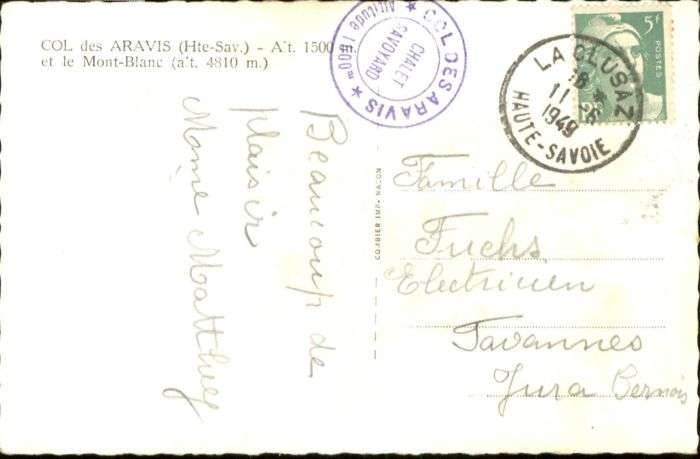 COL des ARAVIS (Hte-Sav.) - A't. 1500 m.
et le Mont-Blanc (a't. 4810 m.)
★ COL DES ARAVIS ★
Altitude 1500m
CHALET
SAVOYARD
5f
POSTES
LA CLUSAZ
18 *
11 - 6
1949
HAUTE-SAVOIE
Beaucoup de
plaisir
Mome Matthey
COMBIER IMP. MACON
Famille
Fuchs
Electricien
Tavannes
Jura Bernois